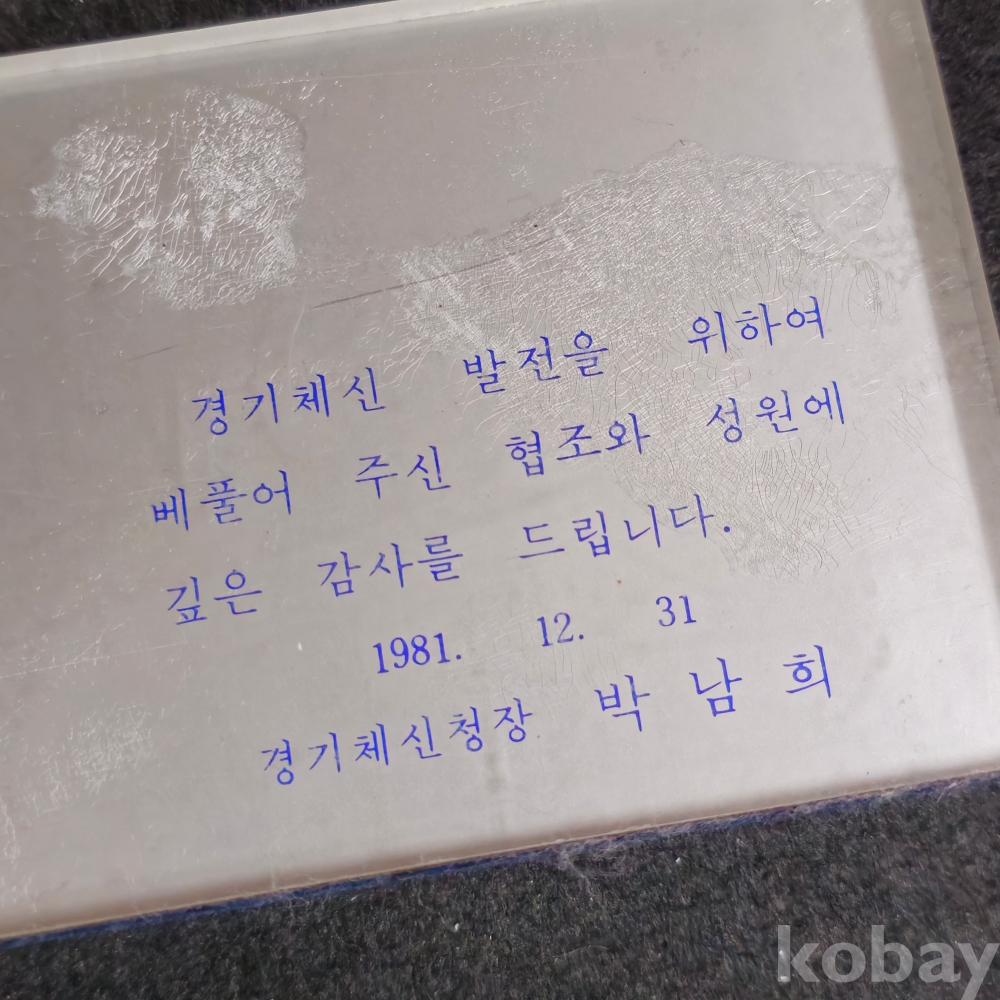 경기체신 발전을 위하여
베풀어 주신 협조와 성원에
깊은 감사를 드립니다.
1981. 12. 31
경기체신청장 박 남 희
kobay